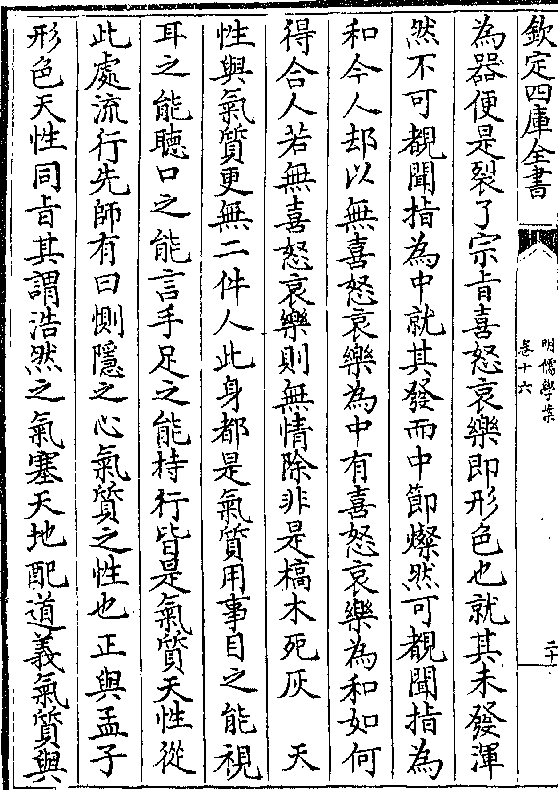 欽定四庫全書
明儒學案
卷十六
二十
為器便是裂了宗旨喜怒哀樂即形色也就其未發渾
然不可覩聞指為中就其發而中節燦然可覩聞指為
和今人却以無喜怒哀樂為中有喜怒哀樂為和如何
得合人若無喜怒哀樂則無情除非是槁木死灰　天
性與氣質更無二件人此身都是氣質用事目之能視
耳之能聽口之能言手足之能持行皆是氣質天性從
此處流行先師有曰惻隱之心氣質之性也正與孟子
形色天性同旨其謂浩然之氣塞天地配道義氣質與